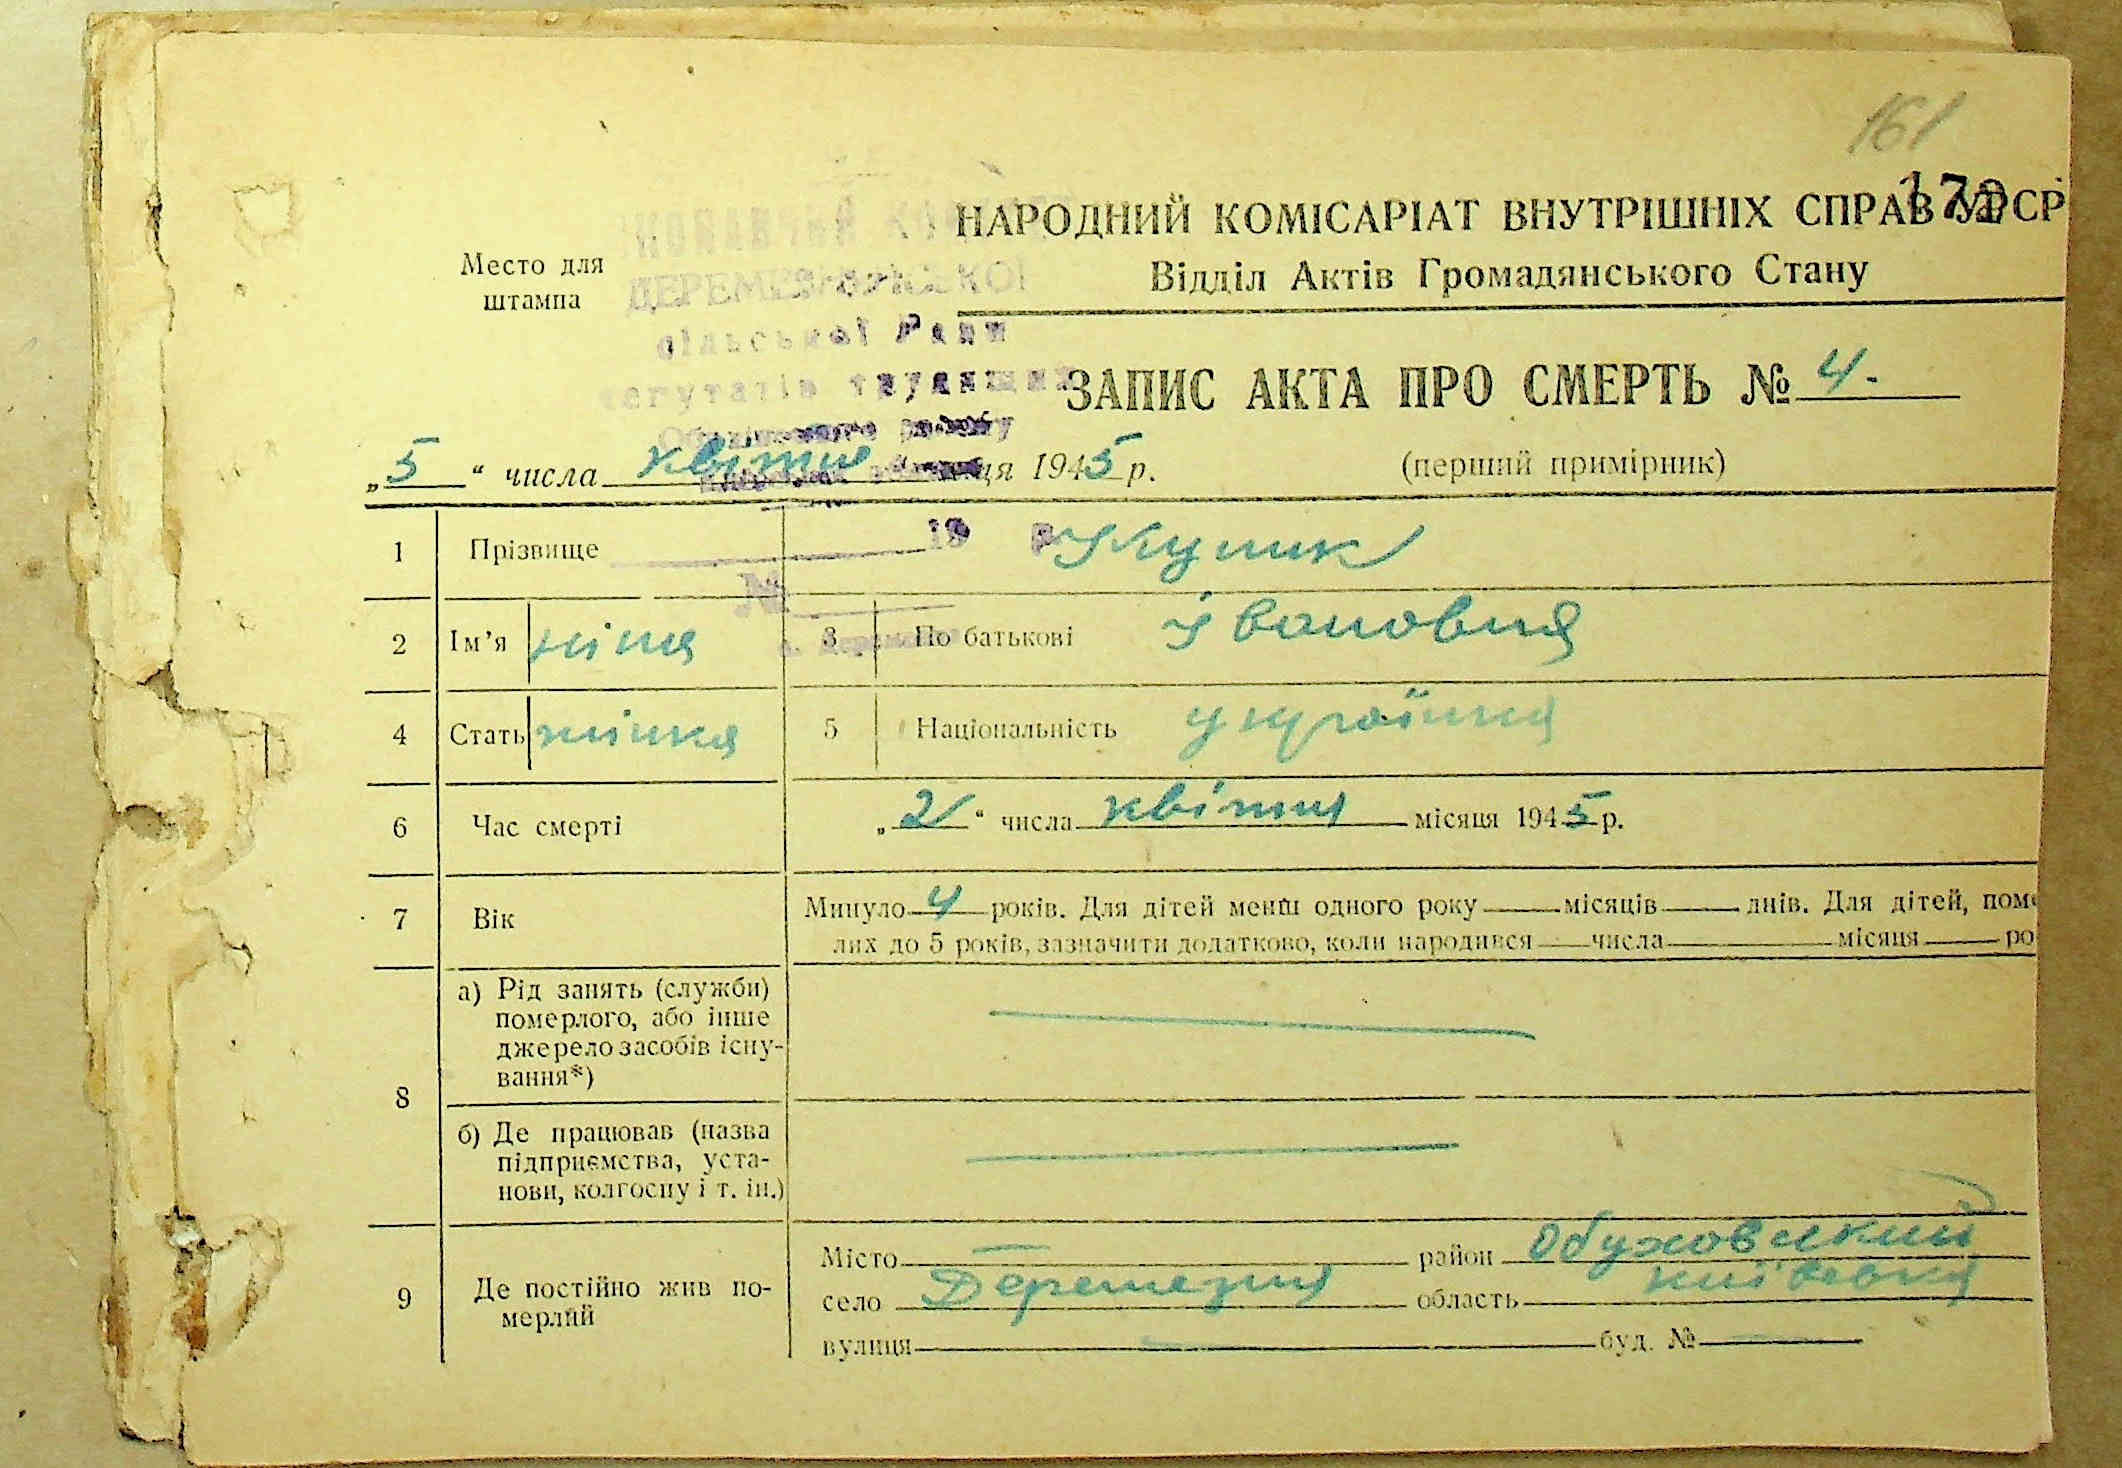 161
172
НАРОДНИЙ КОМІСАРІАТ ВНУТРІШНІХ СПРАВ УРСР
Место для
штампа
Відділ Актів Громадянського Стану
сільської Ради
депутатів трудящих
ЗАПИС АКТА ПРО СМЕРТЬ № 4-
„5“ числа квітня місяця 1945 р.
(перший примірник)
19 р
№
1 Прізвище
2 Ім’я ніна 3 По батькові Івановна
4 Стать жінка 5 Національність українка
6 Час смерті „2“ числа квітня місяця 1945 р.
7 Вік Минуло 4 років. Для дітей менш одного року місяців днів. Для дітей, поме
лих до 5 років, зазначити додатково, коли народився числа місяця ро
8 а) Рід занять (служби)
померлого, або інше
джерело засобів існу-
вання*)
б) Де працював (назва
підприємства, уста-
нови, колгоспу і т. ін.)
9 Де постійно жив по-
мерлий
Місто район Обуховский
село Деремезна область київська
вулиця буд. №